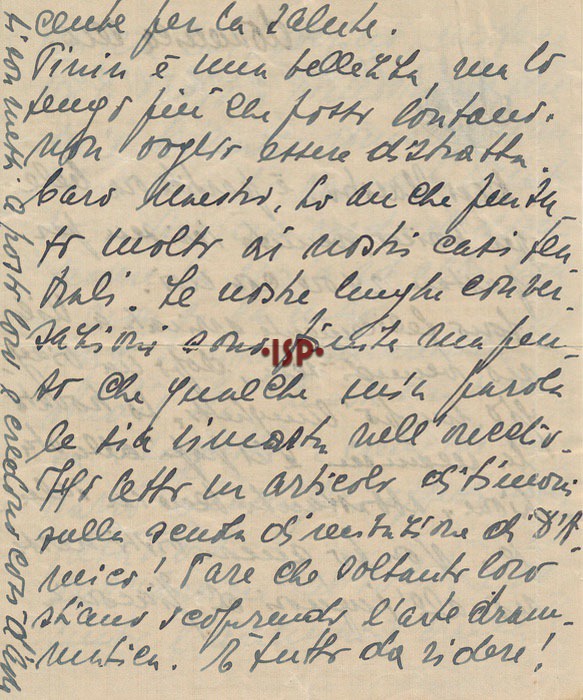 cente per la salute.
Tinin è una bellezza, ma lo
tengo più che posso lontano.
non voglio essere distratta.
Caro Maestro, ho anche pensa
to molto ai nostri casi tea
trali. Le nostre lunghe conver-
sazioni sono finite ma pen-
so che qualche mia parola
le sia rimasta nell'orecchio.
Ho letto un articolo di Simoni
sulla scuola di recitazione di D'A-
mico! Pare che soltanto loro
stiano scoprendo l'arte dram-
matica. È tutto da ridere!
ISP